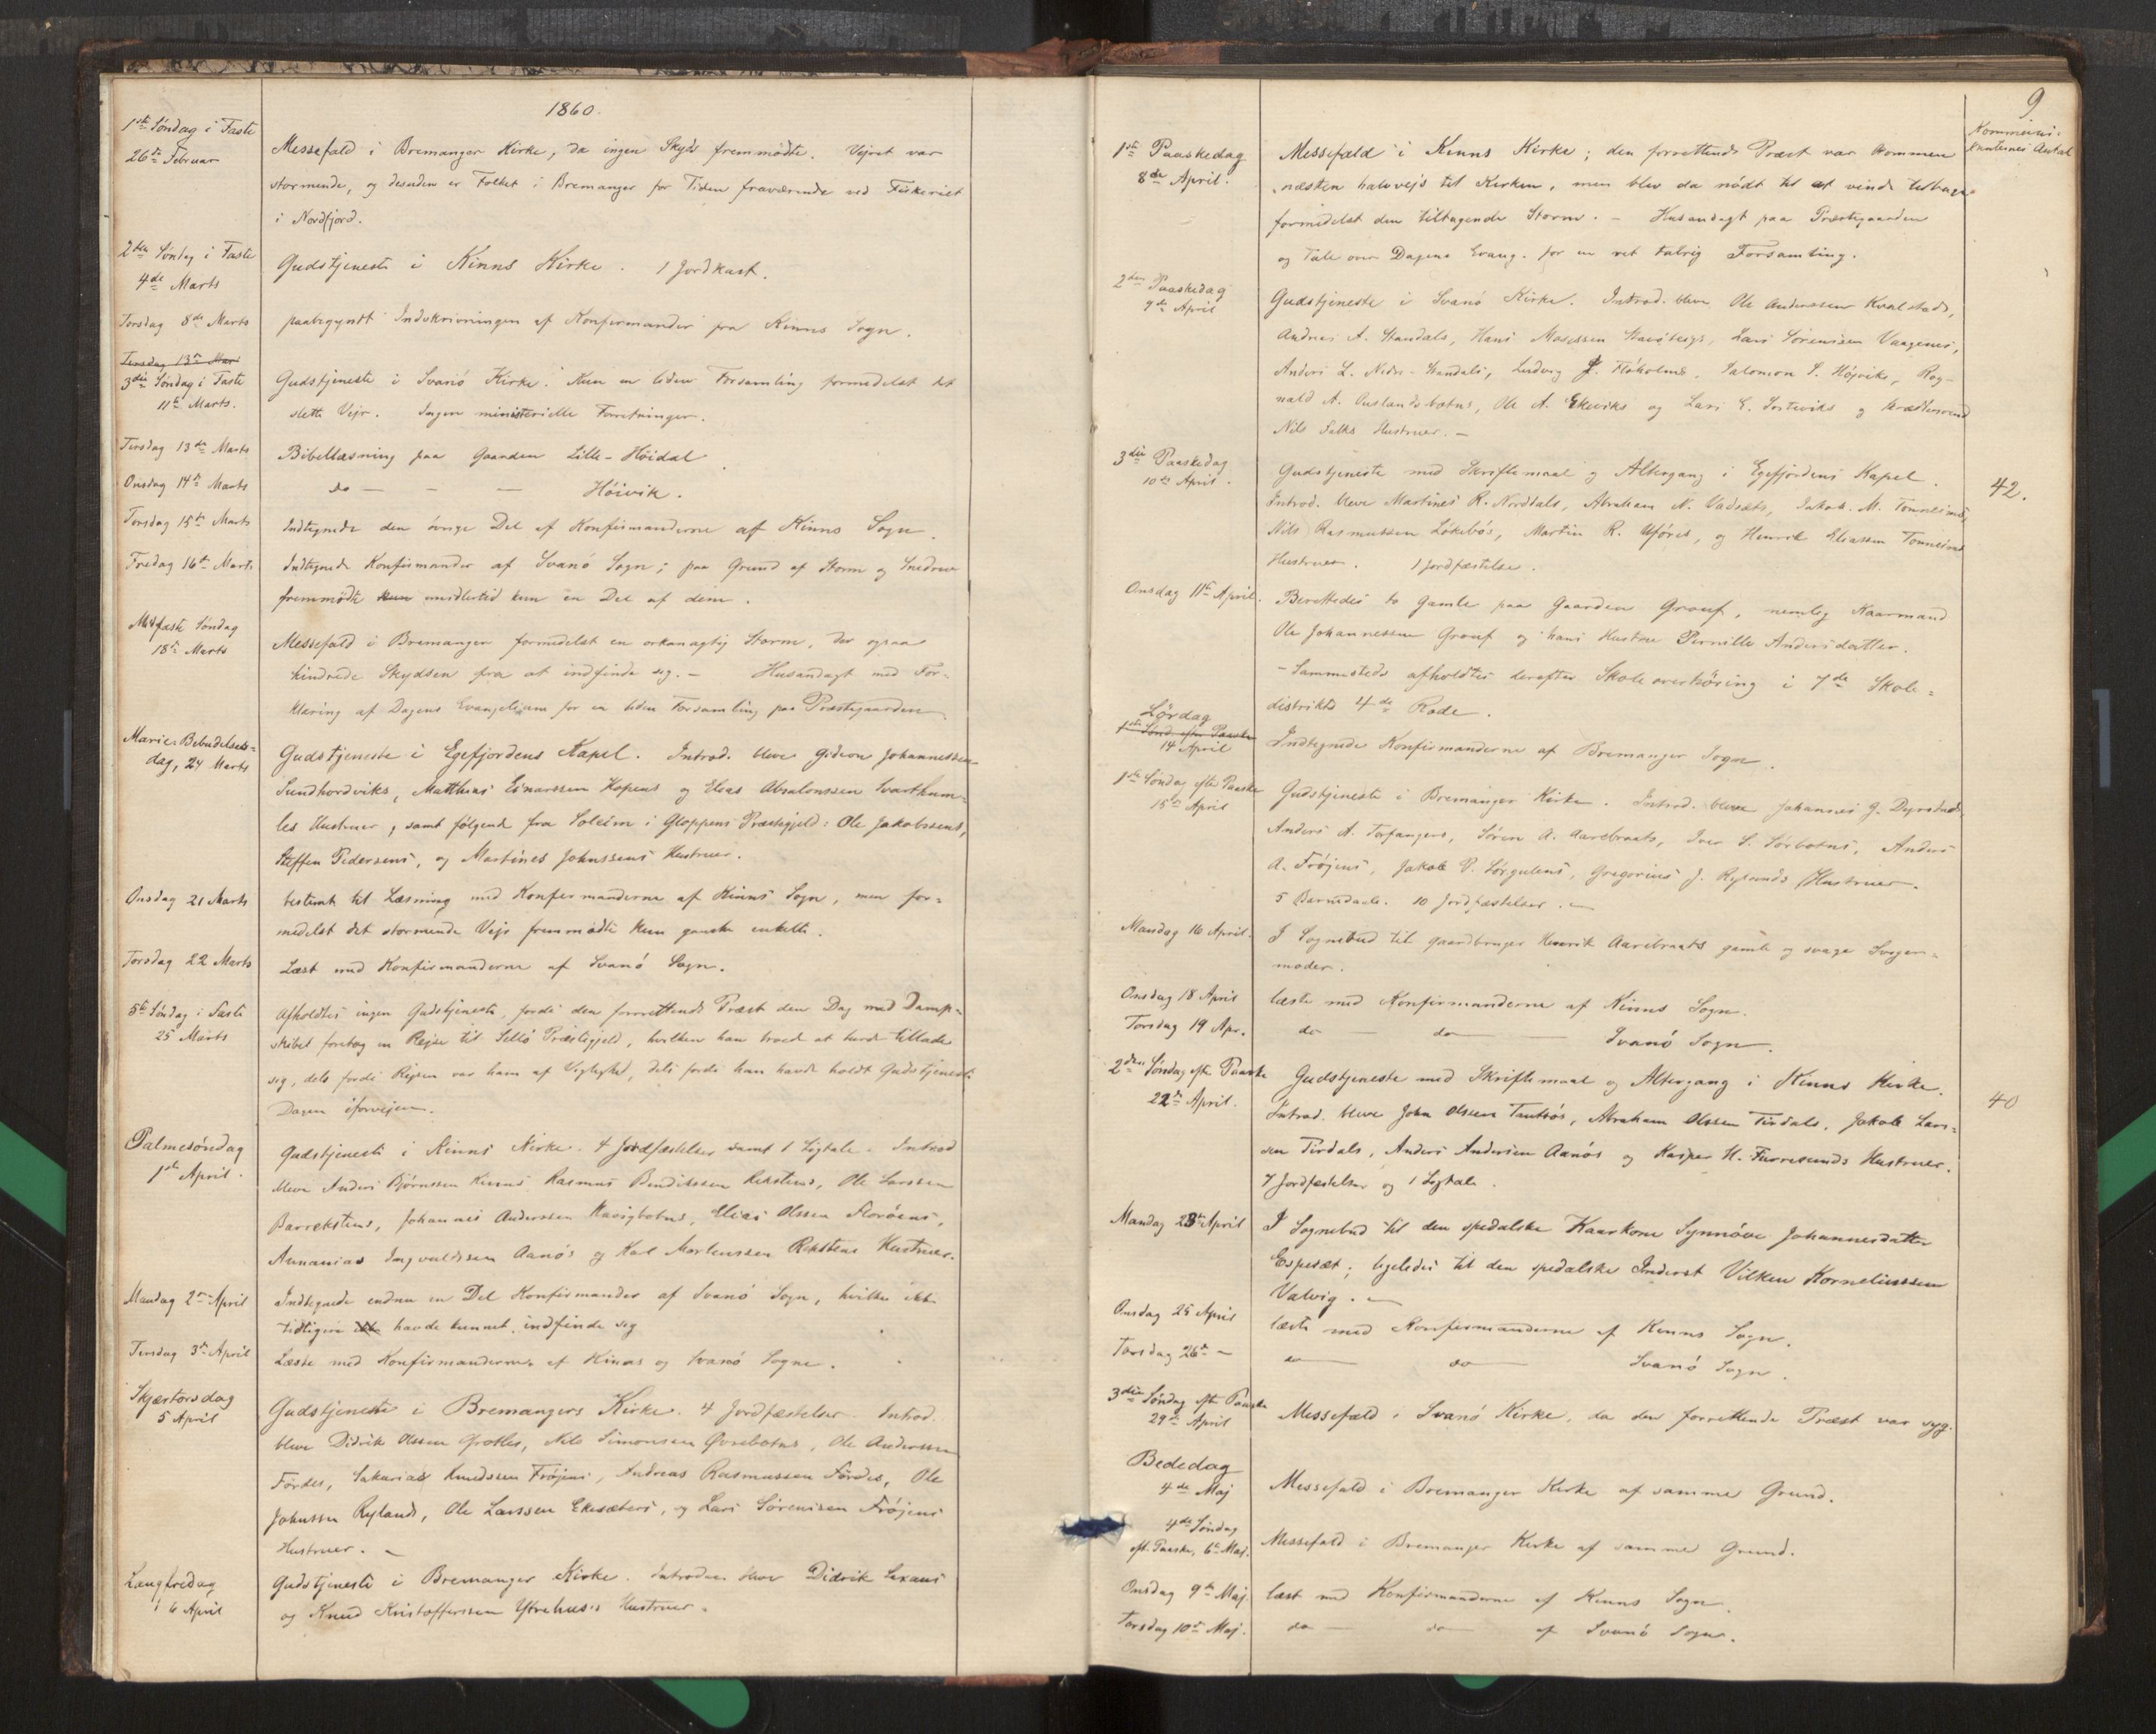 1860.
1ste Søndag i Faste
26de Februar
Messefald i Bremanger Kirke, da ingen Skyds fremmødte. Vejret var
stormende, og desuden er Folket i Bremanger for Tiden fraværende ved Fiskeriet
i Nordfjord.
2den Søndag i Faste
4de Marts
Gudstjeneste i Kinns Kirke. 1 Jordkast.
Torsdag 8de Marts
paabegyndt Indskrivningen af Konfirmander fra Kinns Sogn.
Tirsdag 13de Mar
3die Søndag i Faste
11te Marts.
Gudstjeneste i Svanø Kirke. Kun en liden Forsamling formedelst det
slette Vejr. Ingen ministerielle Forretninger.
Tirsdag 13de Marts
Bibellæsning paa Gaarden Lille-Høidal
Onsdag 14de Marts
do — — — Høivik.
Torsdag 15de Marts
Indtegnede den øvrige Del af Konfirmanderne af Kinns Sogn.
Fredag 16de Marts
Indtegnede Konfirmander af Svanø Sogn; paa Grund af Storm og Snedrev
fremmødte kun imidlertid kun en Del af dem.
Midfaste Søndag
18de Marts
Messefald i Bremanger formedelst en orkanagtig Storm, der ogsaa
hindrede Skydsen fra at indfinde sig. — Husandagt med For-
klaring af Dagens Evangelium for en liden Forsamling paa Præstegaarden.
Mariæ-Bebudelses-
dag, 24 Marts
Gudstjeneste i Egefjordens Kapel. Introd. bleve Gideon Johannessen
Sundhordviks, Matthias Einarssen Hopens og Elias Absalonssen Svarthum-
les Hustruer, samt følgende fra Soleim i Gloppens Præstegjeld: Ole Jakobssens,
Steffen Pedersens, og Martines Johnssens Hustruer.
Onsdag 21 Marts
bestemt til Læsning med Konfirmanderne af Kinns Sogn, men for-
medelst det stormende Vejr fremmødte kun ganske enkelte.
Torsdag 22 Marts
Læst med Konfirmanderne af Svanø Sogn.
5te Søndag i Faste
25 Marts
Afholdtes ingen Gudstjeneste, fordi den forrettende Præst den Dag med Damp-
skibet foretog en Rejse til Sellø Præstegjeld, hvilken han troed at turde tillade
sig, dels fordi Rejsen var ham af Vigtighed, dels fordi han havde holdt Gudstjeneste
Dagen iforvejen.
Palmesøndag
1ste April.
Gudstjeneste i Kinns Kirke. 4 Jordfæstelser samt 1 Ligtale. Introd.
bleve Anders Bjørnssen Kinns Rasmus Bendikssen Rekstens, Ole Larssen
Barrekstens, Johannes Anderssen Havigbotns, Elias Olssen Florøens,
Annanias Ingvaldssen Aanøs og Karl Mortenssen Rekstens Hustruer.
Mandag 2den April
Indtegnede endnu en Del Konfirmander af Svanø Sogn, hvilke ikke
tidligere havde kunnet indfinde sig
Tirsdag 3die April
Læste med Konfirmanderne af Kinns og Svanø Sogne.
Skjærtorsdag
5 April
Gudstjeneste i Bremangers Kirke. 4 Jordfæstelser. Introd.
bleve Didrik Olssen Grotles, Nils Simonssen Øvrebotns, Ole Anderssen
Førdes, Sakarias Knudssen Frøjens, Andreas Rasmussen Førdes, Ole
Johnssen Rylands, Ole Larssen Ekesæters, og Lars Sørenssen Frøjens
Hustruer. —
Langfredag
6 April
Gudstjeneste i Bremanger Kirke. Introdu. bleve Didrik
og Knud Kristofferssen Ytrehus's Hustruer.
9
Kommuni-
kanternes Antal
1ste Paaskedag
8de April.
Messefald i Kinns Kirke; den forrettende Præst var kommen
næsten halvvejs til Kirken, men blev da nødt til at vende tilbage
formedelst den tiltagende Storm. — Husandagt paa Præstegaarden
og Tale over Dagens Evang. for en ret talrig Forsamling.
2den Paaskedag
9de April
Gudstjeneste i Svanø Kirke. Introd. bleve Ole Anderssen Kvalstads,
Andreas A. Standals, Hans Mosessen, Lars Sørenssen Vaagenes,
Anders L. Nedre-Standals, Ludvig J. Fløholms, Salomon S. Højviks, Rag-
nald A. Ouslandsbotns, Ole A. Ekeviks og Lars E. og
Nils Hustruer. —
3die Paaskedag
10de April.
Gudstjeneste med Skriftemaal og Altergang i Egefjordens Kapel. 42.
Introd. bleve Martines R. Norddals, Abraham N. Vadsæts, Jakob M. Tonneims,
Nils Rasmussen Løkebøs, Martin R. Uføres, og Henrik Eliassen Tonneims
Hustruer. 1 Jordfæstelse.
Onsdag 11te April.
Berettedes to Gamle paa Gaarden Grouf, nemlig Kaarmand
Ole Johannessen Grouf og hans Hustru Pernille Andersdatter.
— Sammesteds afholdtes derefter Skoleoverhøring i 7de Skole-
distrikts 4de Rode.
Lørdag
1ste Sønd. efter Paaske
14 April
Indtegnede Konfirmanderne af Bremanger Sogn.
1ste Søndag efter Paaske
15de April
Gudstjeneste i Bremanger Kirke. Introd. bleve Johannes J. Dyrstads
Anders A. Torfangers, Søren A. Aarebraats, Iver S. Sørbotns, Anders
A. Frøjens, Jakob P. Sørgulens, Gregorius J. Rylands Hustruer.
5 Barnedaab. 10 Jordfæstelser. —
Mandag 16 April.
I Sognebud til Gaardbruger Henrik Aarebraats gamle og svage Sviger-
moder.
Onsdag 18 April
læste med Konfirmanderne af Kinns Sogn.
Torsdag 19 Apr.
do — do — Svanø Sogn.
2den Søndag efter Paaske
22de April.
Gudstjeneste med Skriftemaal og Altergang i Kinns Kirke. 40
Introd. bleve John Olssen, Abraham Olssen Tirdals, Jakob Lars-
sen Tirdals, Anders Anderssen Aanøs og Kasper H. Furresunds Hustruer.
7 Jordfæstelser og 1 Ligtale.
Mandag 23de April
I Sognebud til den spedalske Kaarkone Synnøve Johannesdatter
Espesæt; ligeledes til den spedalske Inderst Vilken Korneliussen
Valvig. —
Onsdag 25 April
læste med Konfirmanderne af Kinns Sogn.
Torsdag 26de —
do — do — Svanø Sogn.
3die Søndag eft. Paaske
29de April
Messefald i Svanø Kirke, da den forrettende Præst var syg.
Bededag
4de Maj
Messefald i Bremanger Kirke af samme Grund.
4de Søndag
eft. Paaske, 6te Maj.
Messefald i Bremanger Kirke af samme Grund.
Onsdag 9de Maj.
læst med Konfirmanderne af Kinns Sogn.
Torsdag 10de Maj.
do — do — af Svanø Sogn.